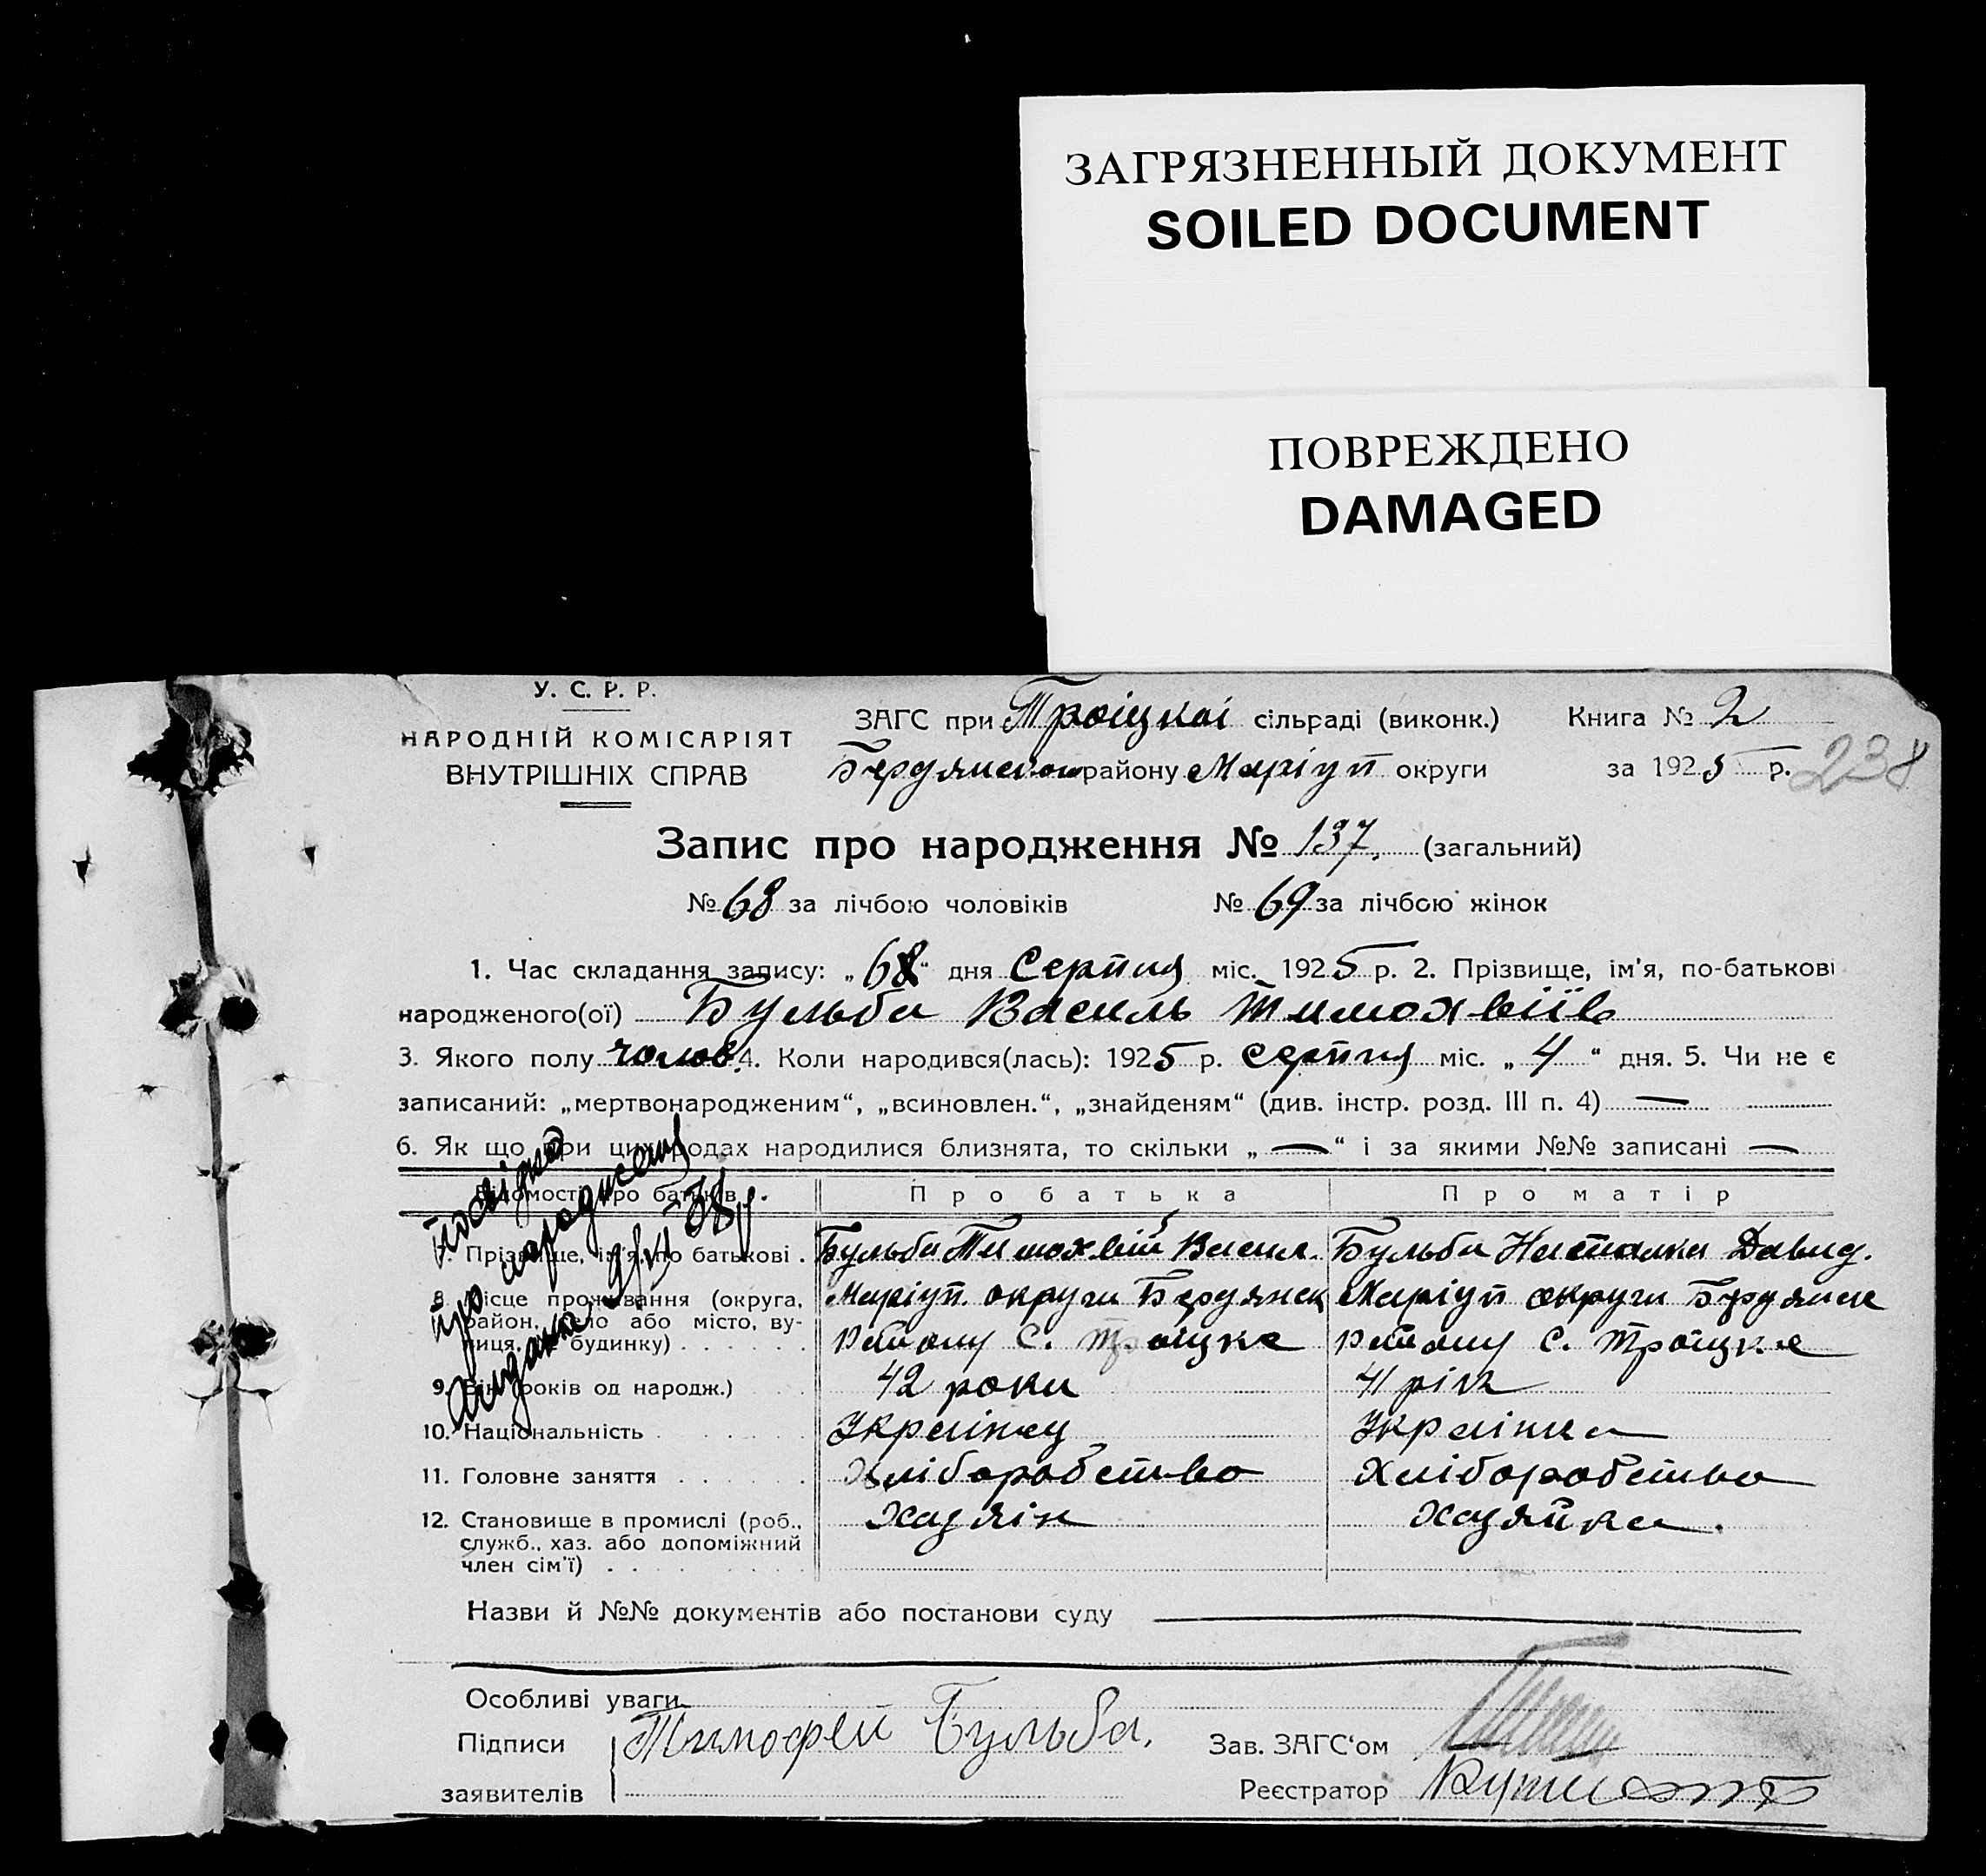 ЗАГРЯЗНЕННЫЙ ДОКУМЕНТ
SOILED DOCUMENT
ПОВРЕЖДЕНО
DAMAGED
У. С. Р. Р.
НАРОДНІЙ КОМІСАРІЯТ
ВНУТРІШНІХ СПРАВ
ЗАГС при Троіцкоі сільраді (виконк.) Книга № 2
району Маріуп округи за 1925 р. 238
Запис про народження № 137. (загальний)
№ 68 за лічбою чоловіків № 69 за лічбою жінок
1. Час складання запису: „ “ дня Серпня міс. 1925 р. 2. Прізвище, ім'я, по-батькові
народженого(ої) Бульба Василь Тимохвіїв
3. Якого полу чолов. 4. Коли народився(лась): 1925 р. серпня міс. „ 4 “ дня. 5. Чи не є
записаний: „мертвонародженим“, „всиновлен.“, „знайденям“ (див. інстр. розд. III п. 4) —
6. Як що при цих родах народилися близнята, то скільки „ — “ і за якими №№ записані —
Відомості про батьків. Про батька Про матір
7. Прізвище, ім'я, по батькові . Бульба Тимохвій Васил. Бульба Наталка Давид.
8. Місце проживання (округа, Маріуп. округи Бердянск Маріуп округи Бердянск
район, село або місто, ву- району с. Троіцке району с. Троїцке
лиця, № будинку) . . . . . .
9. Вік (років од народж.) 42 роки 41 рік
10. Національність . . . . . . Українец Українка
11. Головне заняття . . . . . . Хліборобство Хліборобство
12. Становище в промислі (роб., Хазяін Хазяйка.
служб., хаз. або допоміжний
член сім'ї) . . . . . . . .
Посвідка
про народження
видана
Назви й №№ документів або постанови суду
Особливі уваги
Підписи Тимофей Бульба. Зав. ЗАГС‘ом
заявителів Реєстратор